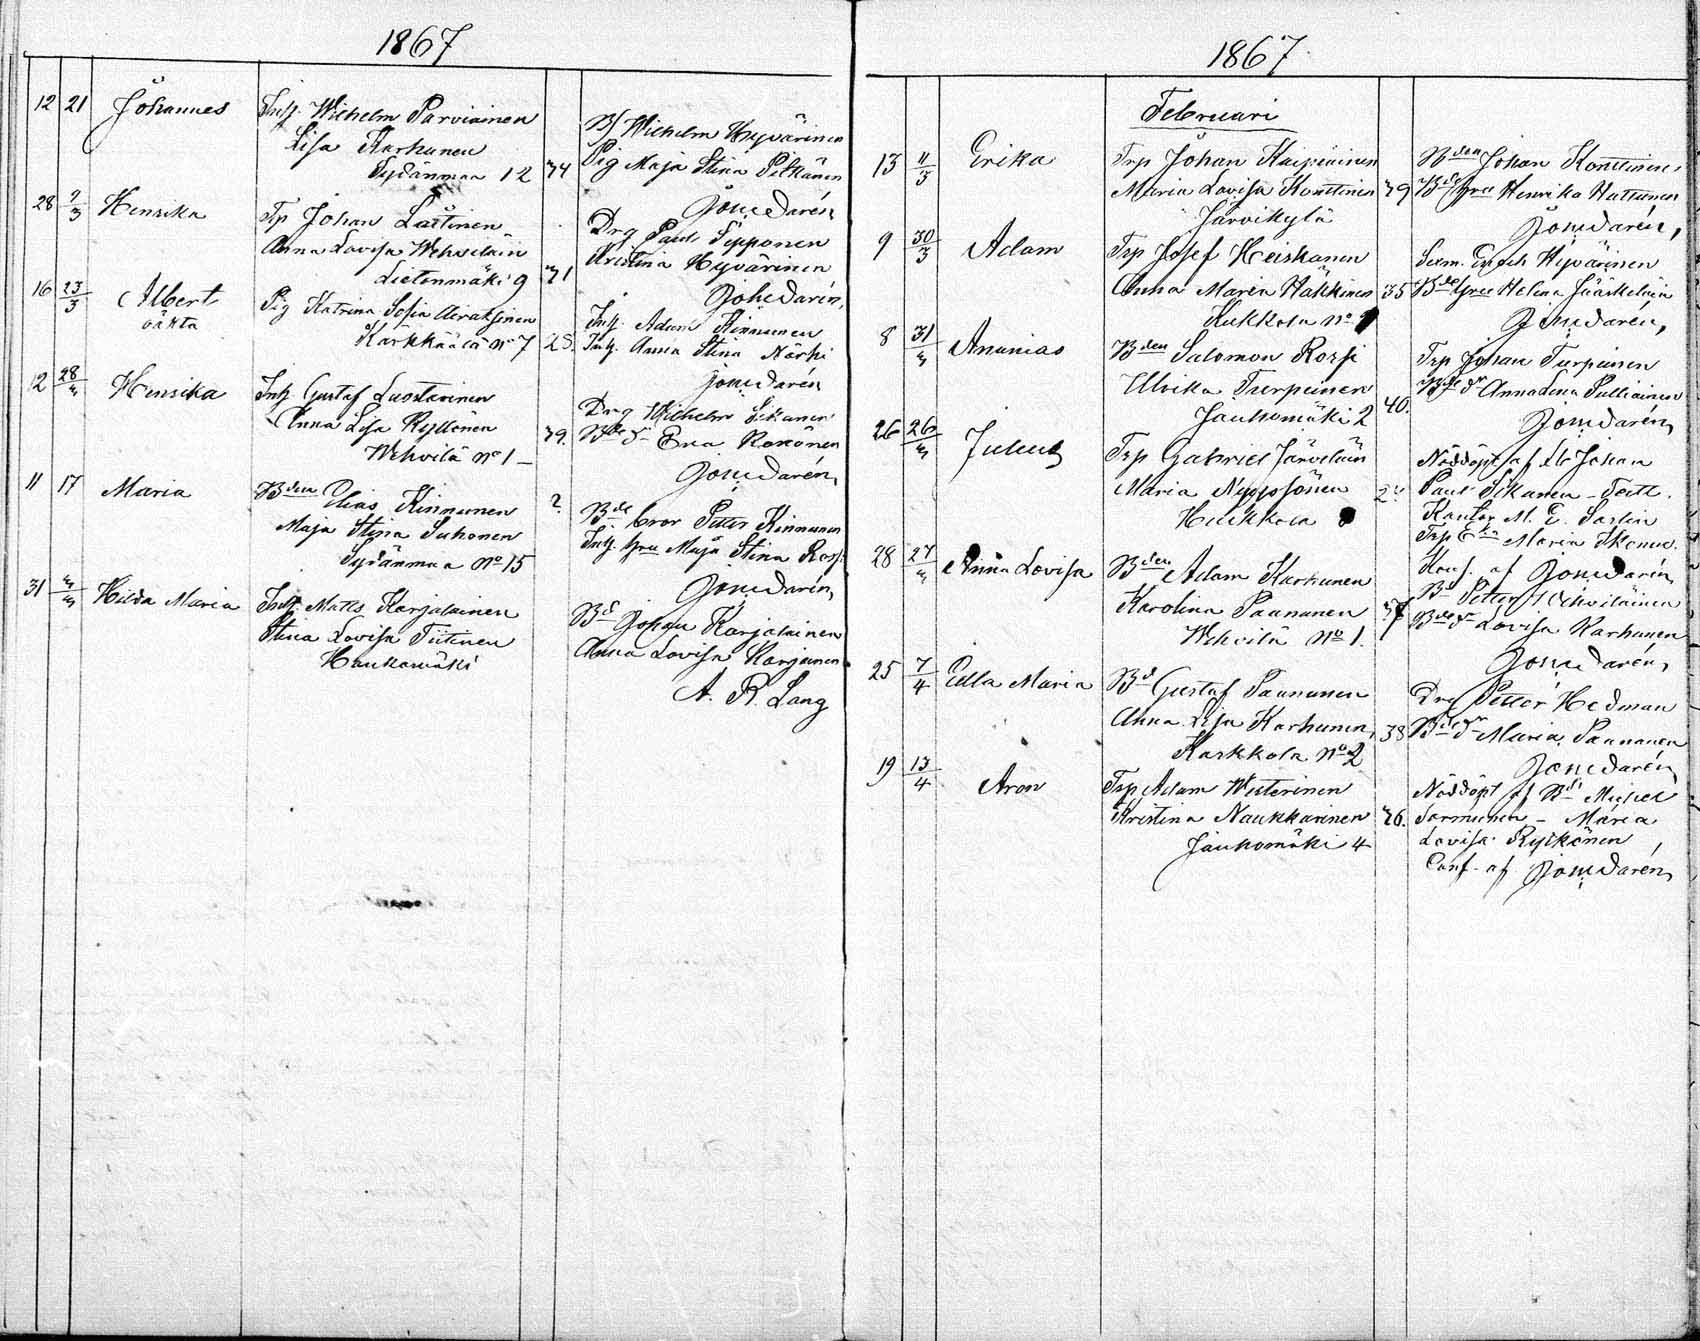 1867
12 21 Johannes Inh. Wilhelm Parviainen
Lisa Karhunen
Sydänmaa 12 34
Bs Wilhelm Hyvärinen
Pig Maja Stina Pitkänen
Joh. Darén
28 2/3 Henrika Tp Johan Lättinen
Anna Lovisa Wehviläin
Lietenmäki 9 31
Drg Paul Sepponen
Kristina Hyvärinen
Joh. Darén,
16 23/3 Albert
oäkta
Pig Katrina Sofia Airaksinen
Kärkkäälä No 7 25.
Inh. Adam Kinnunen
Inh. Anna Stina Närhi
Joh. Darén
12 28/3 Henrika Inh Gustaf Luostarinen
Anna Lisa Kyllönen
Wehvilä No 1 – 39.
Drg Wilhelm Sikanen
Eva Rekonen
Joh. Darén,
11 17 Maria Bden Elias Kinnunen ?
Maja Stina Suhonen
Sydänmaa No 15
Bde bror Petter Kinnunen
Inh. hru Maja Stina Rossi
Joh. Darén,
31 3/3 Hilda Maria Inh. Matts Karjalainen
Stina Lovisa Tiitinen
Haukomäki
Bd Johan Karjalainen
Anna Lovisa Karjainen
A. R. Lang
1867
Februari
13 11/3 Erika Trp Johan Karpiainen
Maria Lovisa Konttinen 39
Järvikylä
Bden Johan Konttinen
Henrika Huttunen
Joh. Darén,
9 30/3 Adam Trp Josef Heiskanen
Anna Maria Häkkinen 35
Kukkola No 1
Sexm. Enoch Hyvärinen
Helena Jääskeläin
Joh. Darén,
8 31/3 Ananias Bden Salomon Rossi
Ulrika Turpeinen
Jaukomäki 2 40.
Trp Johan Turpeinen
Anna Lena Pulliainen
Joh. Darén,
26 26/3 Julius Trp Gabriel Järveläin
Maria Nyyssönen
Hukkola 8
Nöddöpt af Johan
Paul Sikanen –
Kantor M. E. Sarlin
Trp Maria Ikonen
Konf. af Joh. Darén,
28 27/3 Anna Lovisa Bden Adam Karhunen
Karolina Paananen 37
Wehvilä No 1.
Bd Petter Wehviläinen
Lovisa Karhunen
Joh. Darén,
25 7/4 Edla Maria Bd Gustaf Paananen
Anna Lisa Karhunen, 38
Karkkola No 2
Drg Petter Hedman
Maria Paananen
Joh. Darén,
19 13/4 Aron Trp Adam Westerinen
Kristina Naukkarinen 26.
Jaukomäki 4
Nöddöpt af Bd Michel
Sormunen – Maria
Lovisa Rytkönen
Conf. af Joh. Darén,